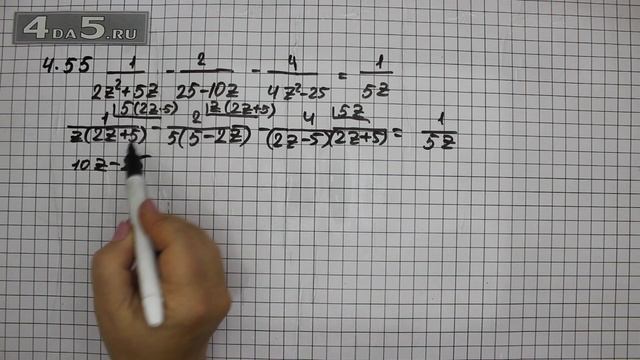 4DA5.RU
4.55 1/(2z²+5z) - 2/(25-10z) - 4/(4z²-25) = 1/(5z)
1⌊5(2z-5)/(z(2z+5)) - 2⌊z(2z+5)/(5(5-2z)) - 4⌊5z/((2z-5)(2z+5)) = 1/(5z)
10z-